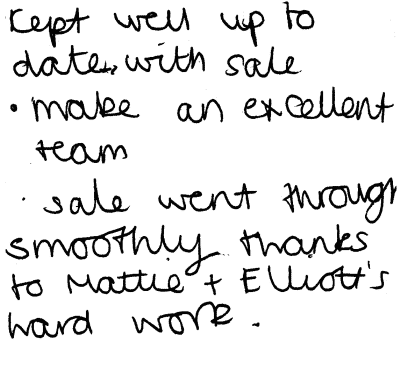 kept well up to
date.. with sale
• make an excellent
team
• sale went through
smoothly thanks
to Mattie + Elliott's
hard work.